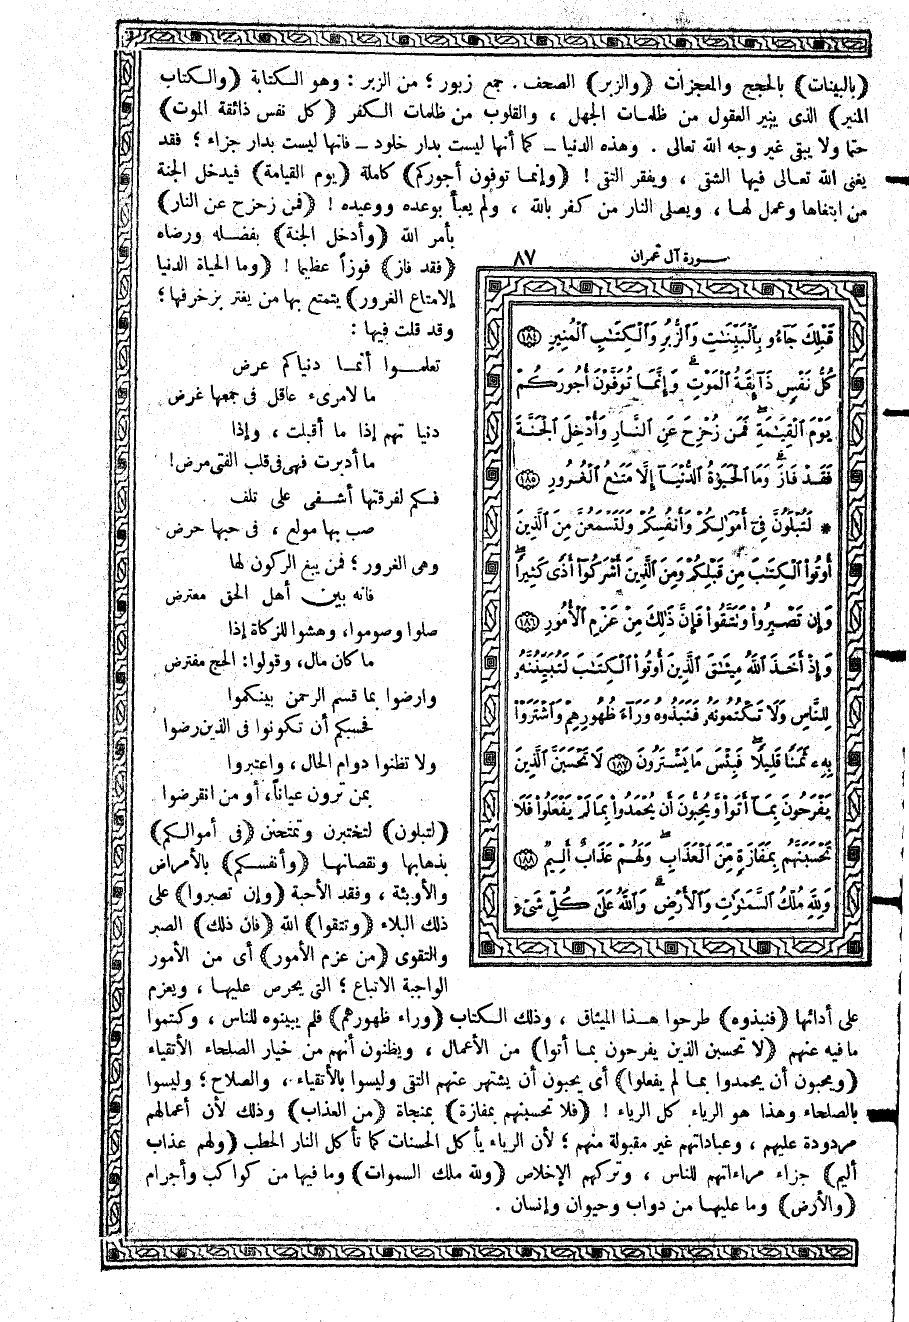 (بالبينات) بالحجج والمعجزات (والزبر) الصحف. جمع زبور؛ من الزبر: وهو الكتابة (والكتاب
المنير) الذى ينير العقول من ظلمات الجهل، والقلوب من ظلمات الكفر (كل نفس ذائقة الموت)
حتما ولا يبقى غير وجه الله تعالى. وهذه الدنيا ــ كما أنها ليست بدار خلود ــ فانها ليست بدار جزاء؛ فقد
يغنى الله تعالى فيها الشقى، ويفقر التقى! (وإنما توفون أجوركم) كاملة (يوم القيامة) فيدخل الجنة
من ابتغاها وعمل لها، ويصلى النار من كفر بالله، ولم يعبأ بوعده ووعيده! (فمن زحزح عن النار)
بأمر الله (وأدخل الجنة) بفضله ورضاه
(فقد فاز) فوزاً عظيما! (وما الحياة الدنيا
إلامتاع الغرور) يتمتع بها من يغتر بزخرفها؛
وقد قلت فيها:
تعلموا أنما دنياكم عرض
ما لامرىء عاقل فى جمعها غرض
دنيا تهم إذا ما أقبلت، وإذا
ما أدبرت فهى فى قلب الفتى مرض!
فكم لفرقتها أشفى على تلف
صب بها مولع، فى حبها حرض
وهى الغرور؛ فمن يبغ الركون لها
فانه بين أهل الحق معترض
صلوا وصوموا، وهشوا للزكاة إذا
ما كان مال، وقولوا: الحج مفترض
وارضوا بما قسم الرحمن بينكموا
فحسبكم أن تكونوا فى الذين رضوا
ولا تظنوا دوام الحال، واعتبروا
بمن ترون عياناً، أو من انقرضوا
(لتبلون) لتختبرن وتمتحنن (فى أموالكم)
بذهابها ونقصانها (وأنفسكم) بالأمراض
والأوبئة، وفقد الأحبة (وإن تصبروا) على
ذلك البلاء (وتتقوا) الله (فان ذلك) الصبر
والتقوى (من عزم الأمور) أى من الأمور
الواجبة الاتباع؛ التى يحرص عليها، ويعزم
سورة آل عمران ٨٧
قَبْلِكَ جَآءُو بِٱلْبَيِّنَٰتِ وَٱلزُّبُرِ وَٱلْكِتَٰبِ ٱلْمُنِيرِ ١٨٤
كُلُّ نَفْسٍ ذَآئِقَةُ ٱلْمَوْتِ وَإِنَّمَا تُوَفَّوْنَ أُجُورَكُمْ
يَوْمَ ٱلْقِيَٰمَةِ فَمَن زُحْزِحَ عَنِ ٱلنَّارِ وَأُدْخِلَ ٱلْجَنَّةَ
فَقَدْ فَازَ وَمَا ٱلْحَيَوٰةُ ٱلدُّنْيَآ إِلَّا مَتَٰعُ ٱلْغُرُورِ ١٨٥
* لَتُبْلَوُنَّ فِىٓ أَمْوَٰلِكُمْ وَأَنفُسِكُمْ وَلَتَسْمَعُنَّ مِنَ ٱلَّذِينَ
أُوتُوا۟ ٱلْكِتَٰبَ مِن قَبْلِكُمْ وَمِنَ ٱلَّذِينَ أَشْرَكُوٓا۟ أَذًى كَثِيرًا
وَإِن تَصْبِرُوا۟ وَتَتَّقُوا۟ فَإِنَّ ذَٰلِكَ مِنْ عَزْمِ ٱلْأُمُورِ ١٨٦
وَإِذْ أَخَذَ ٱللَّهُ مِيثَٰقَ ٱلَّذِينَ أُوتُوا۟ ٱلْكِتَٰبَ لَتُبَيِّنُنَّهُۥ
لِلنَّاسِ وَلَا تَكْتُمُونَهُۥ فَنَبَذُوهُ وَرَآءَ ظُهُورِهِمْ وَٱشْتَرَوْا۟
بِهِۦ ثَمَنًا قَلِيلًا فَبِئْسَ مَا يَشْتَرُونَ ١٨٧ لَا تَحْسَبَنَّ ٱلَّذِينَ
يَفْرَحُونَ بِمَآ أَتَوا۟ وَّيُحِبُّونَ أَن يُحْمَدُوا۟ بِمَا لَمْ يَفْعَلُوا۟ فَلَا
تَحْسَبَنَّهُم بِمَفَازَةٍ مِّنَ ٱلْعَذَابِ وَلَهُمْ عَذَابٌ أَلِيمٌ ١٨٨
وَلِلَّهِ مُلْكُ ٱلسَّمَٰوَٰتِ وَٱلْأَرْضِ وَٱللَّهُ عَلَىٰ كُلِّ شَىْءٍ
على أدائها (فنبذوه) طرحوا هذا الميثاق، وذلك الكتاب (وراء ظهورهم) فلم يبينوه للناس، وكتموا
ما فيه عنهم (لا تحسبن الذين يفرحون بما أتوا) من الأعمال، ويظنون أنهم من خيار الصلحاء الأتقياء
(ويحبون أن يحمدوا بما لم يفعلوا) أى يحبون أن يشتهر عنهم التقى وليسوا بالأتقياء، والصلاح؛ وليسوا
بالصلحاء وهذا هو الرياء كل الرياء! (فلا تحسبنهم بمفازة) بمنجاة (من العذاب) وذلك لأن أعمالهم
مردودة عليهم، وعباداتهم غير مقبولة منهم؛ لأن الرياء يأكل الحسنات كما تأكل النار الحطب (ولهم عذاب
أليم) جزاء مراءاتهم للناس، وتركهم الإخلاص (ولله ملك السموات) وما فيها من كواكب وأجرام
(والأرض) وما عليها من دواب وحيوان وإنسان.